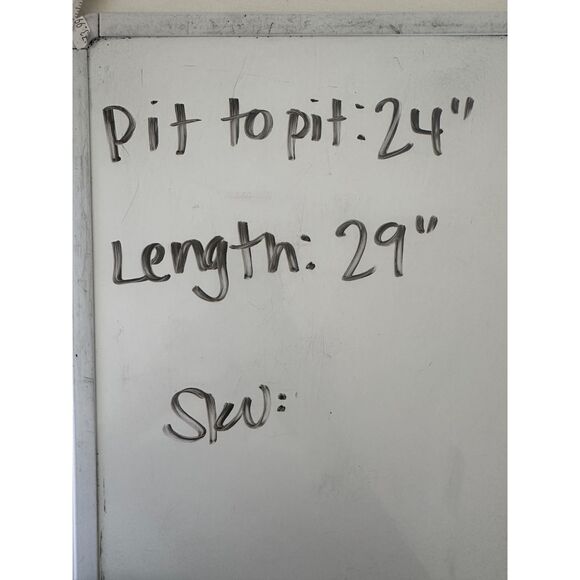 Pit to pit: 24"
Length: 29"
SKU: